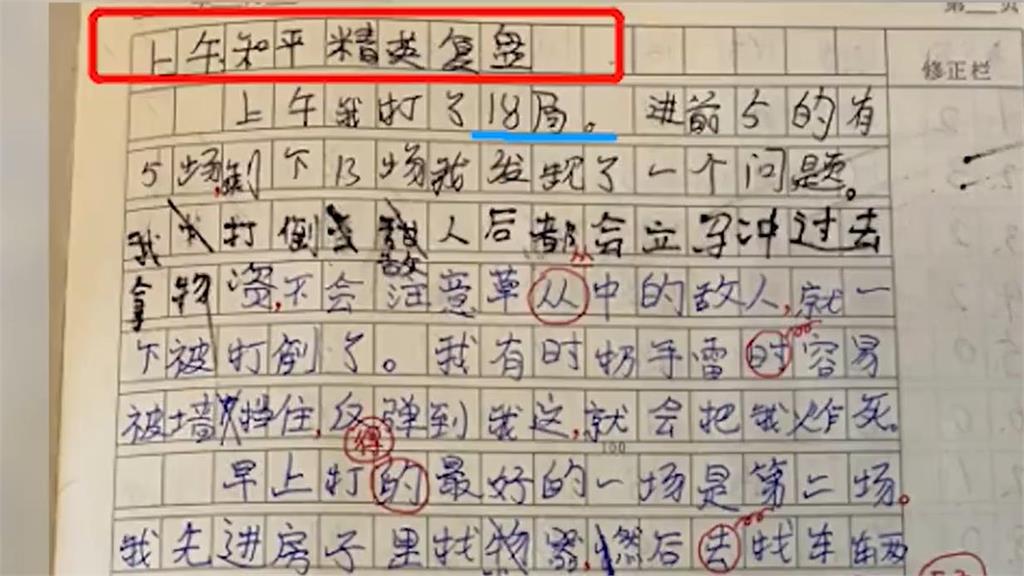 第 页
上午和平精英复盘
修正栏
上午我打了18局。进前5的有
5场,剩下13场我发现了一个问题。
我打倒敌人后都会立马冲过去
拿物资,不会注意草从中的敌人,就一
丛
下被打倒了。我有时扔手雷时容易
被墙挡住,反弹到我这,就会把我炸死。
得
100
早上打的最好的一场是第二场。
我先进房子里找物器,然后去找车辆